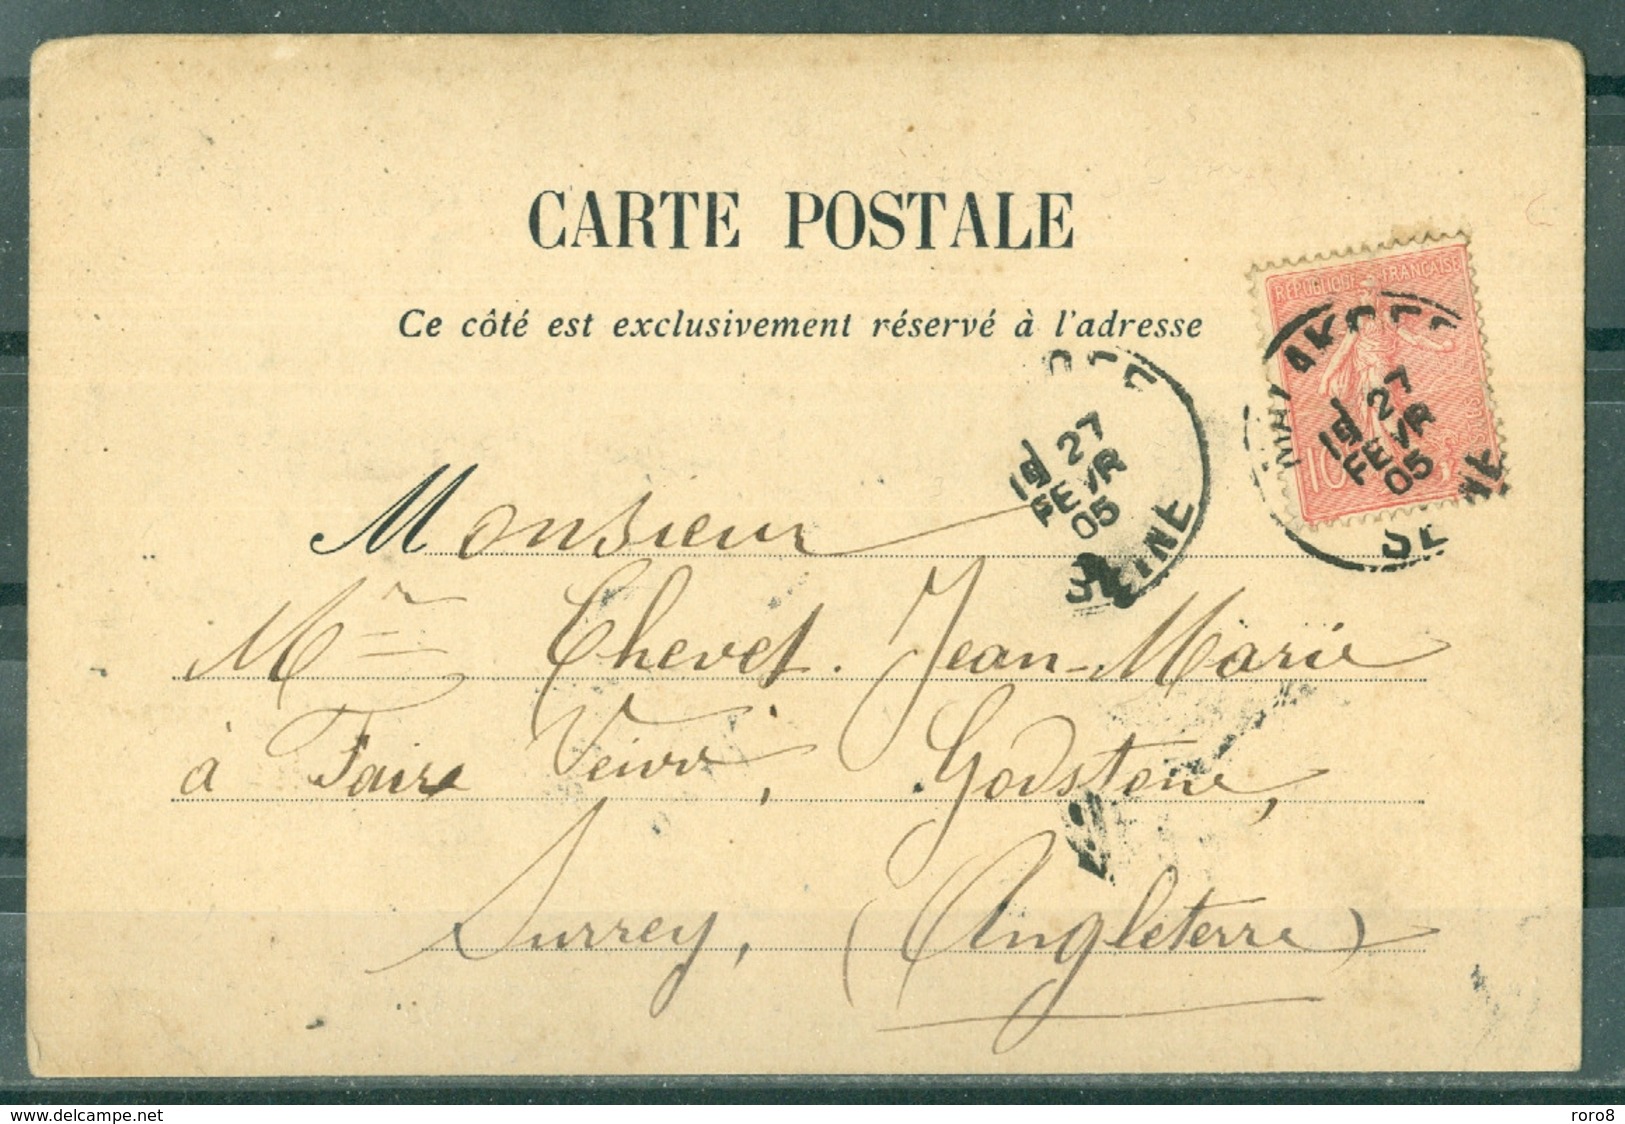 CARTE POSTALE
Ce côté est exclusivement réservé à l'adresse
RÉPUBLIQUE FRANÇAISE
10
POSTES
19 27
FEVR
05
SEINE
19 27
FEVR
05
SEINE
Monsieur
Mr Chevet Jean-Marie
à Faire View, Godstone,
Surrey, (Angleterre)
delcampe.net
roro8